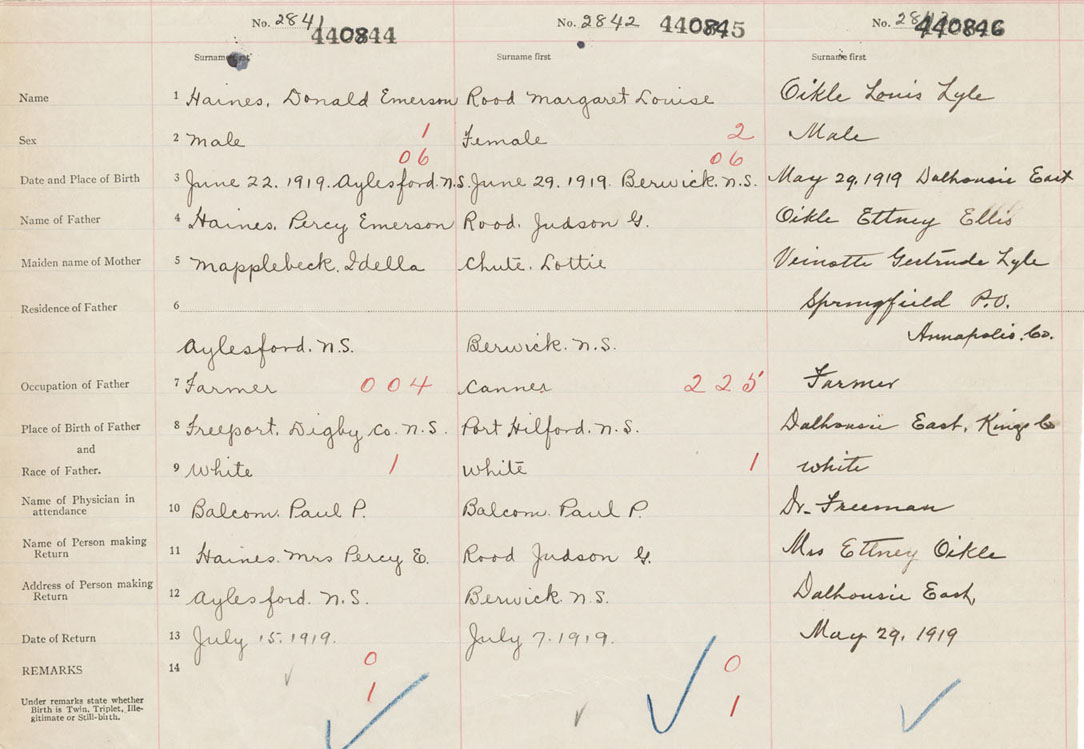 No. 2841 440844 No. 2842 440845 No. 440846
Surname first Surname first Surname first
Name 1 Haines, Donald Emerson Rood Margaret Louise Oikle Louis Lyle
Sex 2 Male 1 Female 2 Male
06 06
Date and Place of Birth 3 June 22. 1919. Aylesford. N.S. June 29. 1919. Berwick. N.S. May 29, 1919 Dalhousie East
Name of Father 4 Haines. Percy Emerson Rood. Judson G. Oikle Ettney Ellis
Maiden name of Mother 5 Mapplebeck. Idella Chute. Lottie Veinotte Gertrude Lyle
Residence of Father 6 Springfield P.O.
Aylesford. N.S. Berwick. N.S. Annapolis. Co.
Occupation of Father 7 Farmer 004 Canner 225 Farmer
Place of Birth of Father 8 Freeport. Digby Co. N.S. Port Hilford. N.S. Dalhousie East, Kings Co
and
Race of Father. 9 White 1 White 1 White
Name of Physician in
attendance 10 Balcom. Paul P. Balcom. Paul P. Dr. Freeman
Name of Person making
Return 11 Haines. Mrs Percy E. Rood Judson G. Mrs Ettney Oikle
Address of Person making
Return 12 Aylesford. N.S. Berwick. N.S. Dalhousie East,
Date of Return 13 July 15. 1919. July 7. 1919. May 29, 1919
REMARKS 14 0 0
Under remarks state whether
Birth is Twin, Triplet, Ille-
gitimate or Still-birth. 1 1